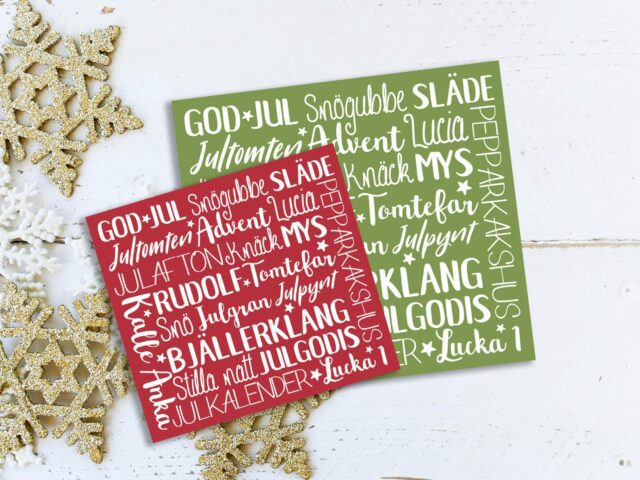 GOD★JUL Snögubbe SLÄDE
Jultomten Advent Lucia
Knäck MYS
Tomtefar
Julpynt
PEPPARKAKSHUS
RKLANG
LGODIS
R★Lucka 1
GOD★JUL Snögubbe SLÄDE
Jultomten Advent Lucia
JULAFTON Knäck MYS
RUDOLF★Tomtefar
Snö Julgran Julpynt
BJÄLLERKLANG
Stilla natt JULGODIS
JULKALENDER★Lucka 1
Kalle Anka
PEPPARKAKSHUS